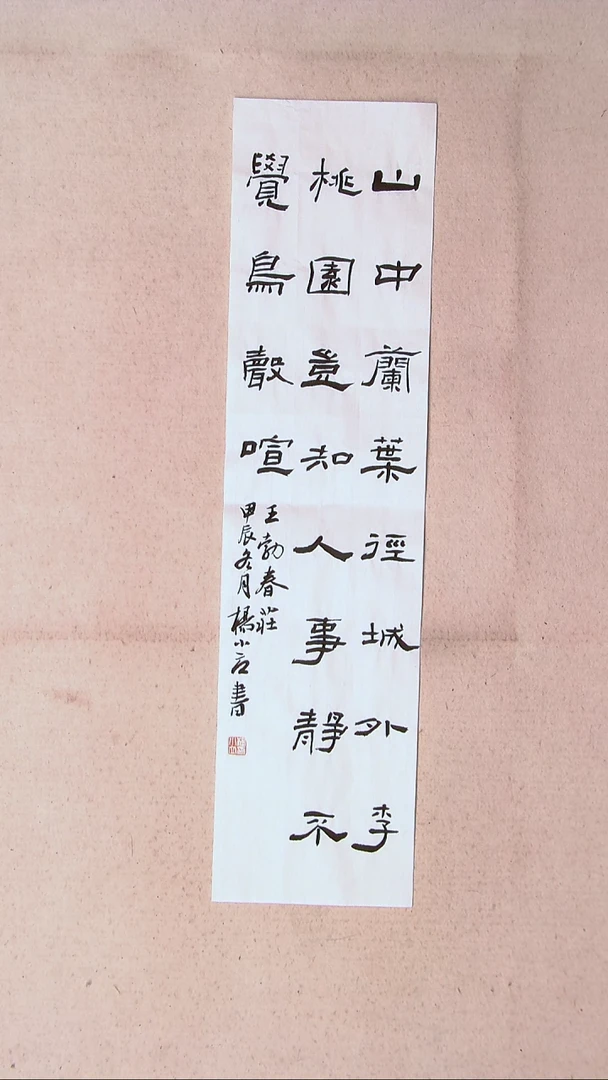 山中蘭葉徑城外李
桃園豈知人事靜不
覺鳥聲喧
王勃春莊
甲辰冬月楊小言書